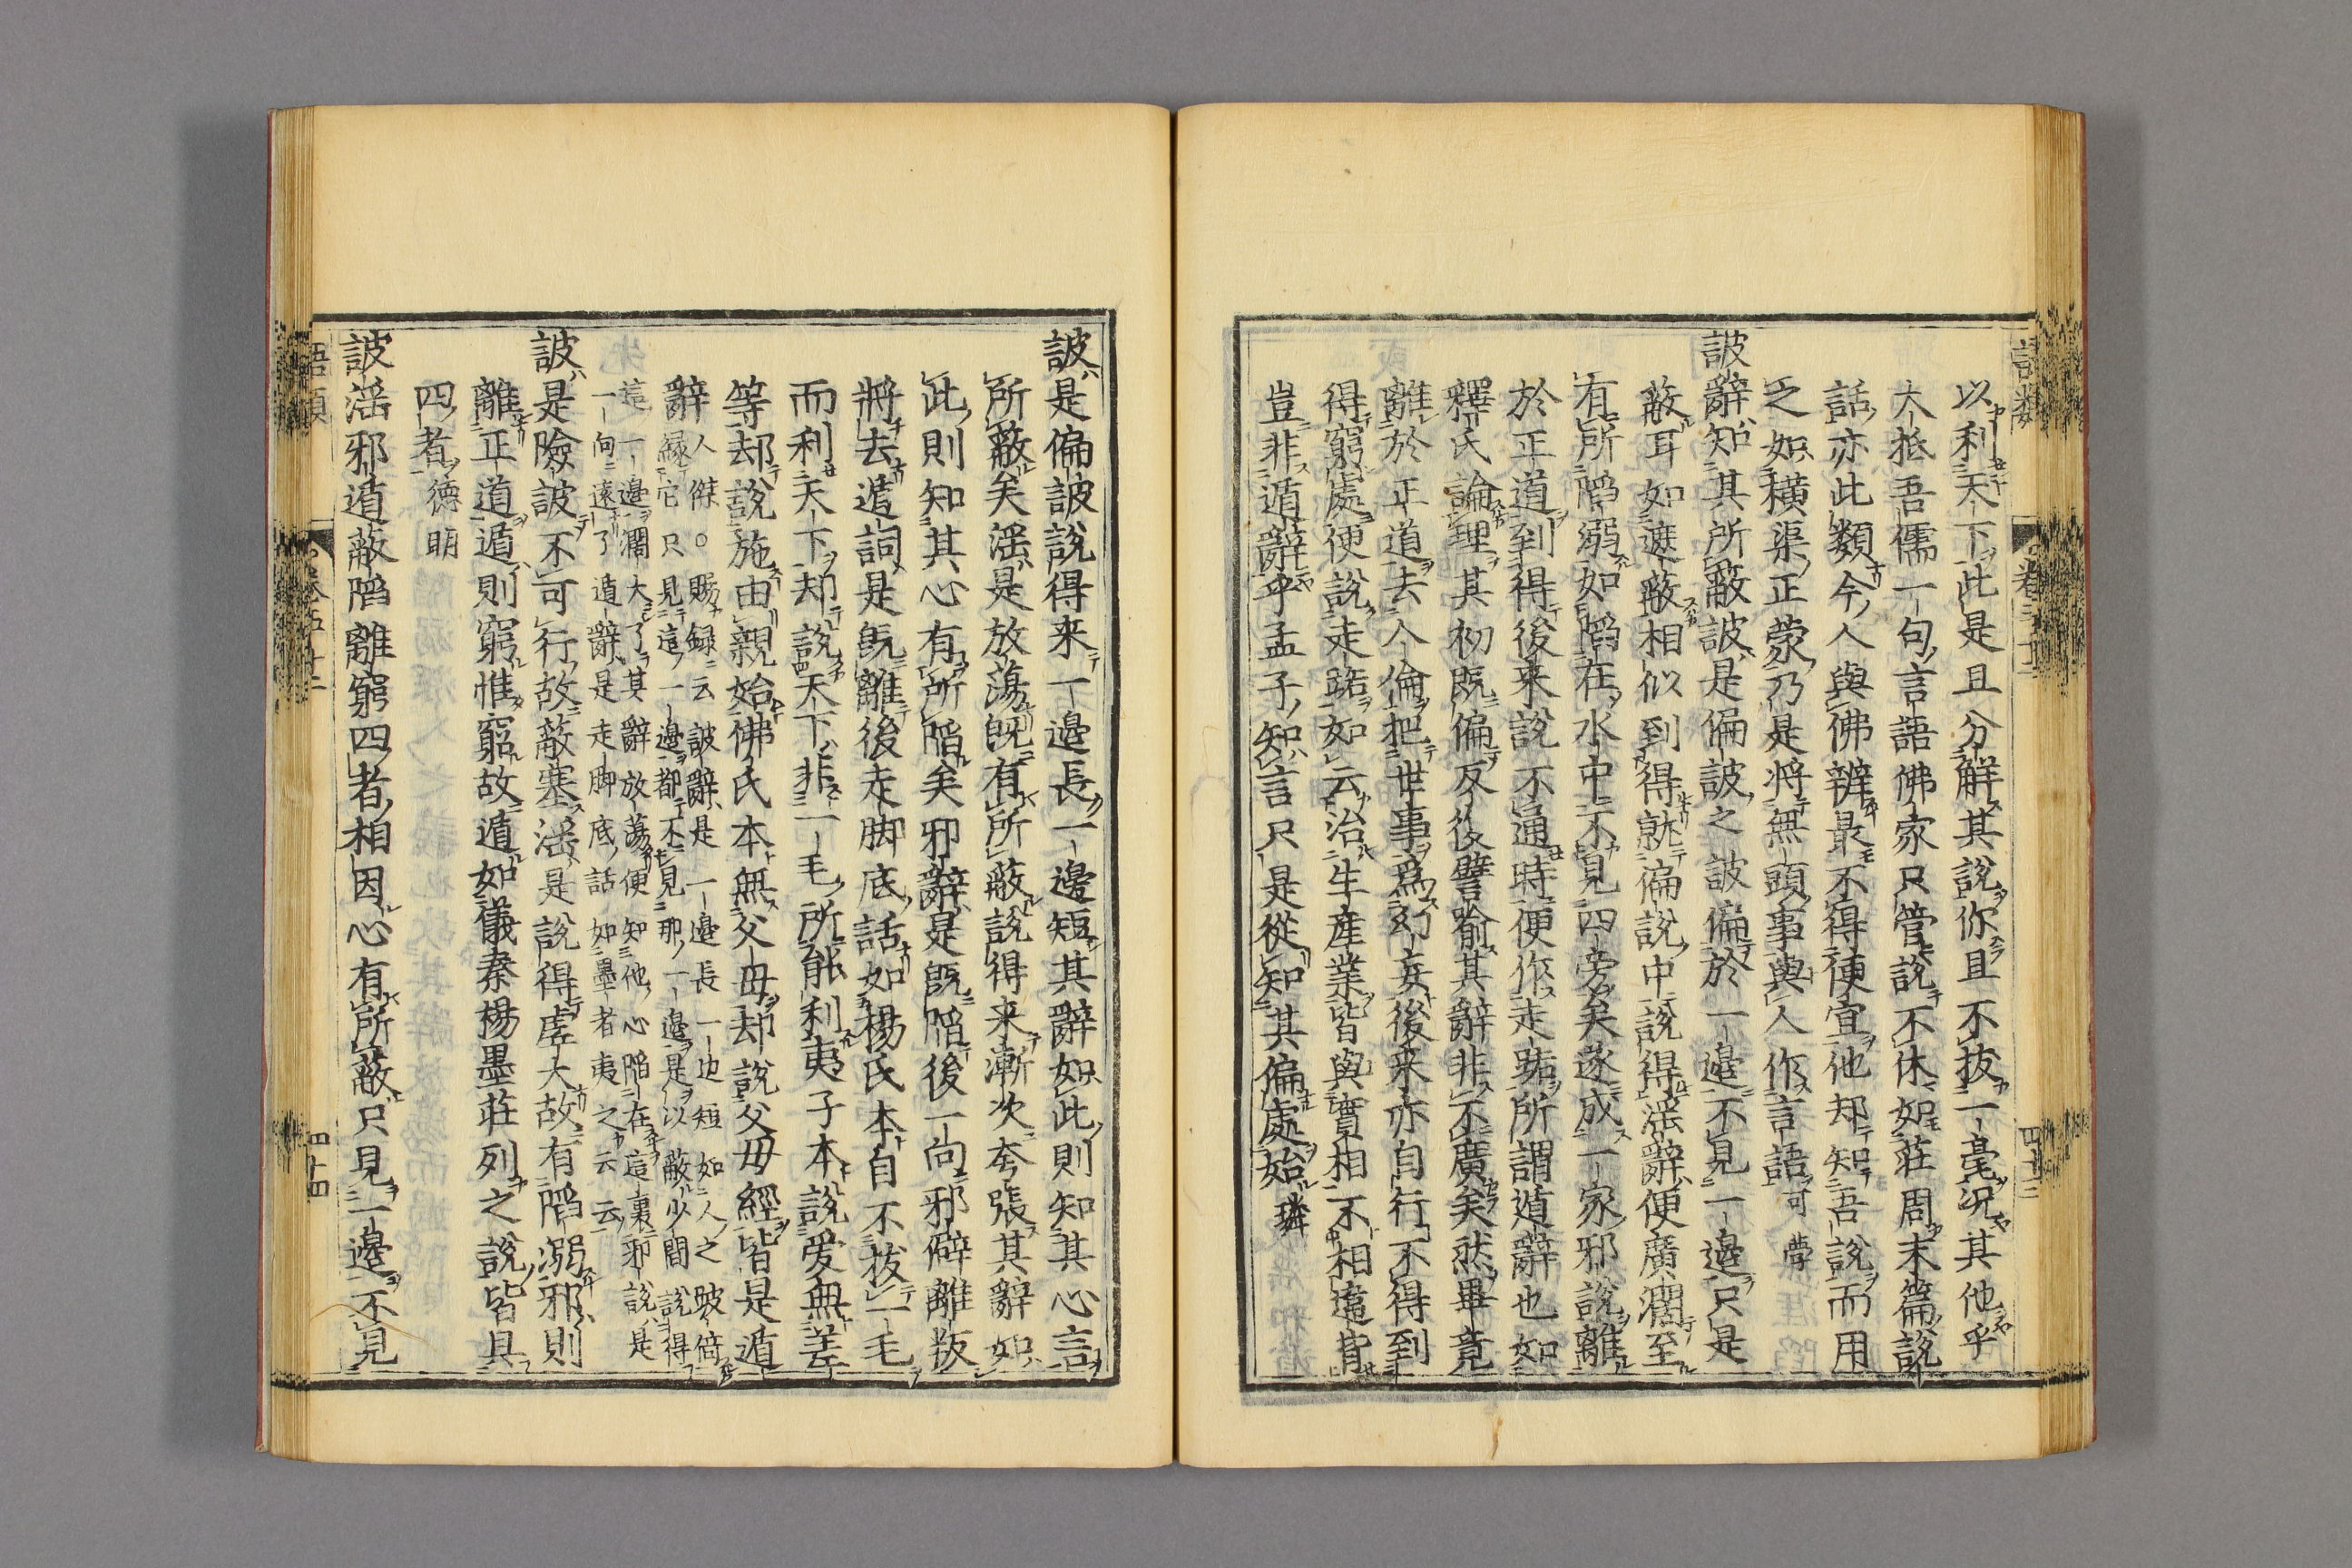 語類
卷五十二
四十三
以利天下此是且分解其說你且不拔一毫況其他乎
大抵吾儒一句言語佛家只管說不休如莊周末篇說
話亦此類今人與佛辨最不得便宜他却知吾說而用
之如橫渠正蒙乃是將無頭事與人作言語可學
詖辭知其所蔽詖是偏詖之詖偏於一邊不見一邊只是
蔽耳如遮蔽相似到得就偏說中說得淫辭便廣濶至
有所陷溺如陷在水中不見四旁矣遂成一家邪說離
於正道到得後来說不通時便作走路所謂遁辭也如
釋氏論理其初既偏反復譬喻其辭非不廣矣然畢竟
離於正道去人倫把世事爲幻妄後来亦自行不得到
得窮處便說走路如云治生産業皆與實相不相違背
豈非遁辭乎孟子知言只是從知其偏處始璘
詖是偏詖說得来一邊長一邊短其辭如此則知其心言
所蔽矣淫是放蕩既有所蔽說得来漸次夸張其辭如
此則知其心有所陷矣邪辭是既陷後一向邪僻離叛
將去遁詞是既離後走脚底話如楊氏本自不拔一毛
而利天下却說天下非一毛所能利夷子本說爱無差
等却說施由親始佛氏本無父母却說父母經皆是遁
辭人傑○賜録云詖辭是一邊長一边短如人之跛倚
緣它只見這一邊都不見那一邊是以蔽少間說得
這一邊濶大了其辭放蕩便知他心陷在這裏邪說是
一向遠了遁辭是走脚底話如墨者夷之云云
詖是險詖不可行故蔽塞淫是說得虚大故有陷溺邪則
離正道遁則窮惟窮故遁如儀秦楊墨莊列之說皆具
四者德明
詖淫邪遁蔽陷離窮四者相因心有所蔽只見一邊不見
語類
卷五十二
四十四